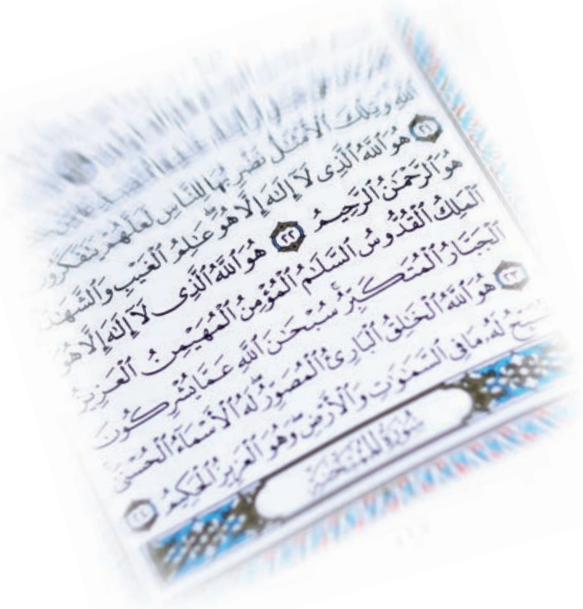 الله وتلك الأمثل نضربها للناس لعلهم يتفكرون
٢١ هو الله الذي لا إله إلا هو علم الغيب والشهدة
هو الرحمن الرحيم ٢٢ هو الله الذي لا إله إلا هو
الملك القدوس السلم المؤمن المهيمن العزيز
الجبار المتكبر سبحن الله عما يشركون
٢٣ هو الله الخلق البارئ المصور له الأسماء الحسنى
يسبح له ما في السموت والأرض وهو العزيز الحكيم ٢٤
سورة الممتحنة